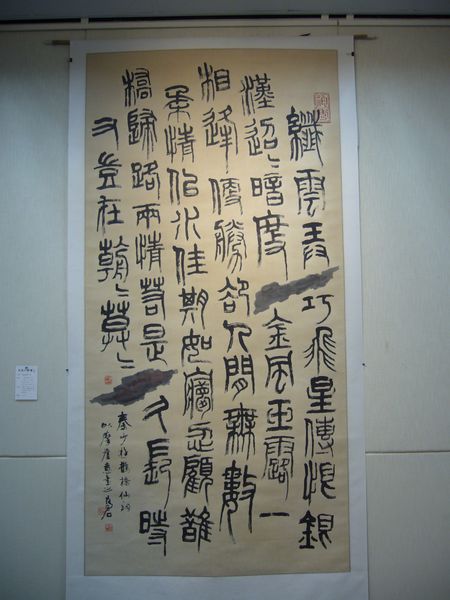 纖雲弄巧飛星傳恨銀
漢迢〻暗度金風玉露一
相逢便勝卻人間無數
柔情似水佳期如夢忍顧鵲
橋歸路兩情若是久長時
又豈在朝〻暮〻
秦少游鵲橋仙詞
以摩崖意書之